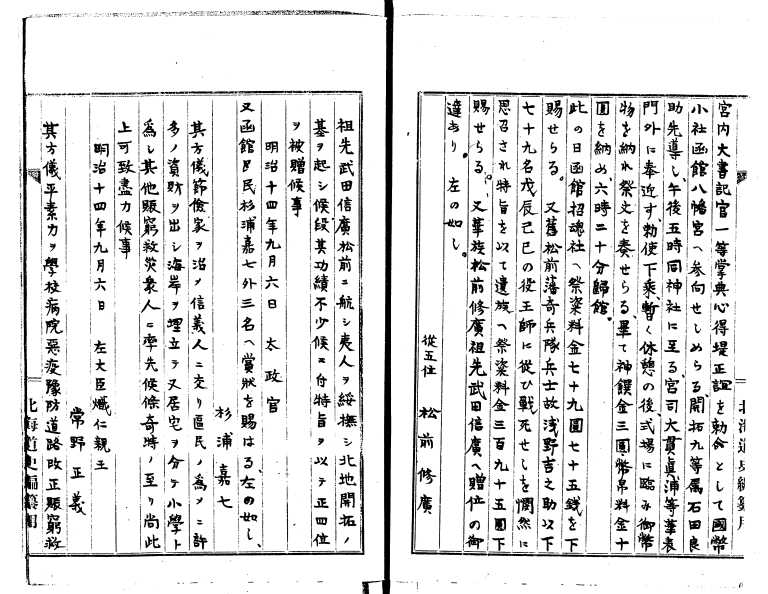 宮内大書記官一等掌典心得堤正誼を勅令として國幣
小社函館八幡宮へ参向せしめらる開拓九等属石田良
助先導し午後五時同神社に至る宮司大貫眞浦等華表
門外に奉迎す勅使下乗暫く休憩の後式場に臨み御幣
物を納れ祭文を奏せらる畢て神饌金三圓幣帛料金十
圓を納め六時二十分歸館。
此の日函館招魂社へ祭粢料金七十九圓七十五銭を下
賜せらる。又舊松前藩奇兵隊兵士故浅野吉之助以下
七十九名戊辰己巳の役王師に從ひ戰死せしを憫然に
思召され特旨を以て遺族へ祭粢料金三百九十五圓下
賜せらる。又華族松前修廣祖先武田信廣へ贈位の御
達あり。左の如し。
從五位 松前修廣
祖先武田信廣松前ニ航シ夷人ヲ綏撫シ北地開拓ノ
基ヲ起シ候段其功績不少候ニ付特旨ヲ以テ正四位
ヲ被贈候事
明治十四年九月六日 太政官
又函館區民杉浦嘉七外三名へ賞狀を賜はる、左の如し、
杉浦嘉七
其方儀節儉家ヲ治メ信義人ニ交リ區民ノ為メニ許
多ノ資財ヲ出シ海岸ヲ埋立テ又居宅ヲ分テ小學ト
為し其他賑窮救災衆人ニ率先候條奇特ノ至リ尚此
上可致盡力候事
明治十四年九月六日 左大臣熾仁親王
常野正義
其方儀平素力ヲ學校病院惡疫豫防道路改正賑窮救
北海道史編纂用